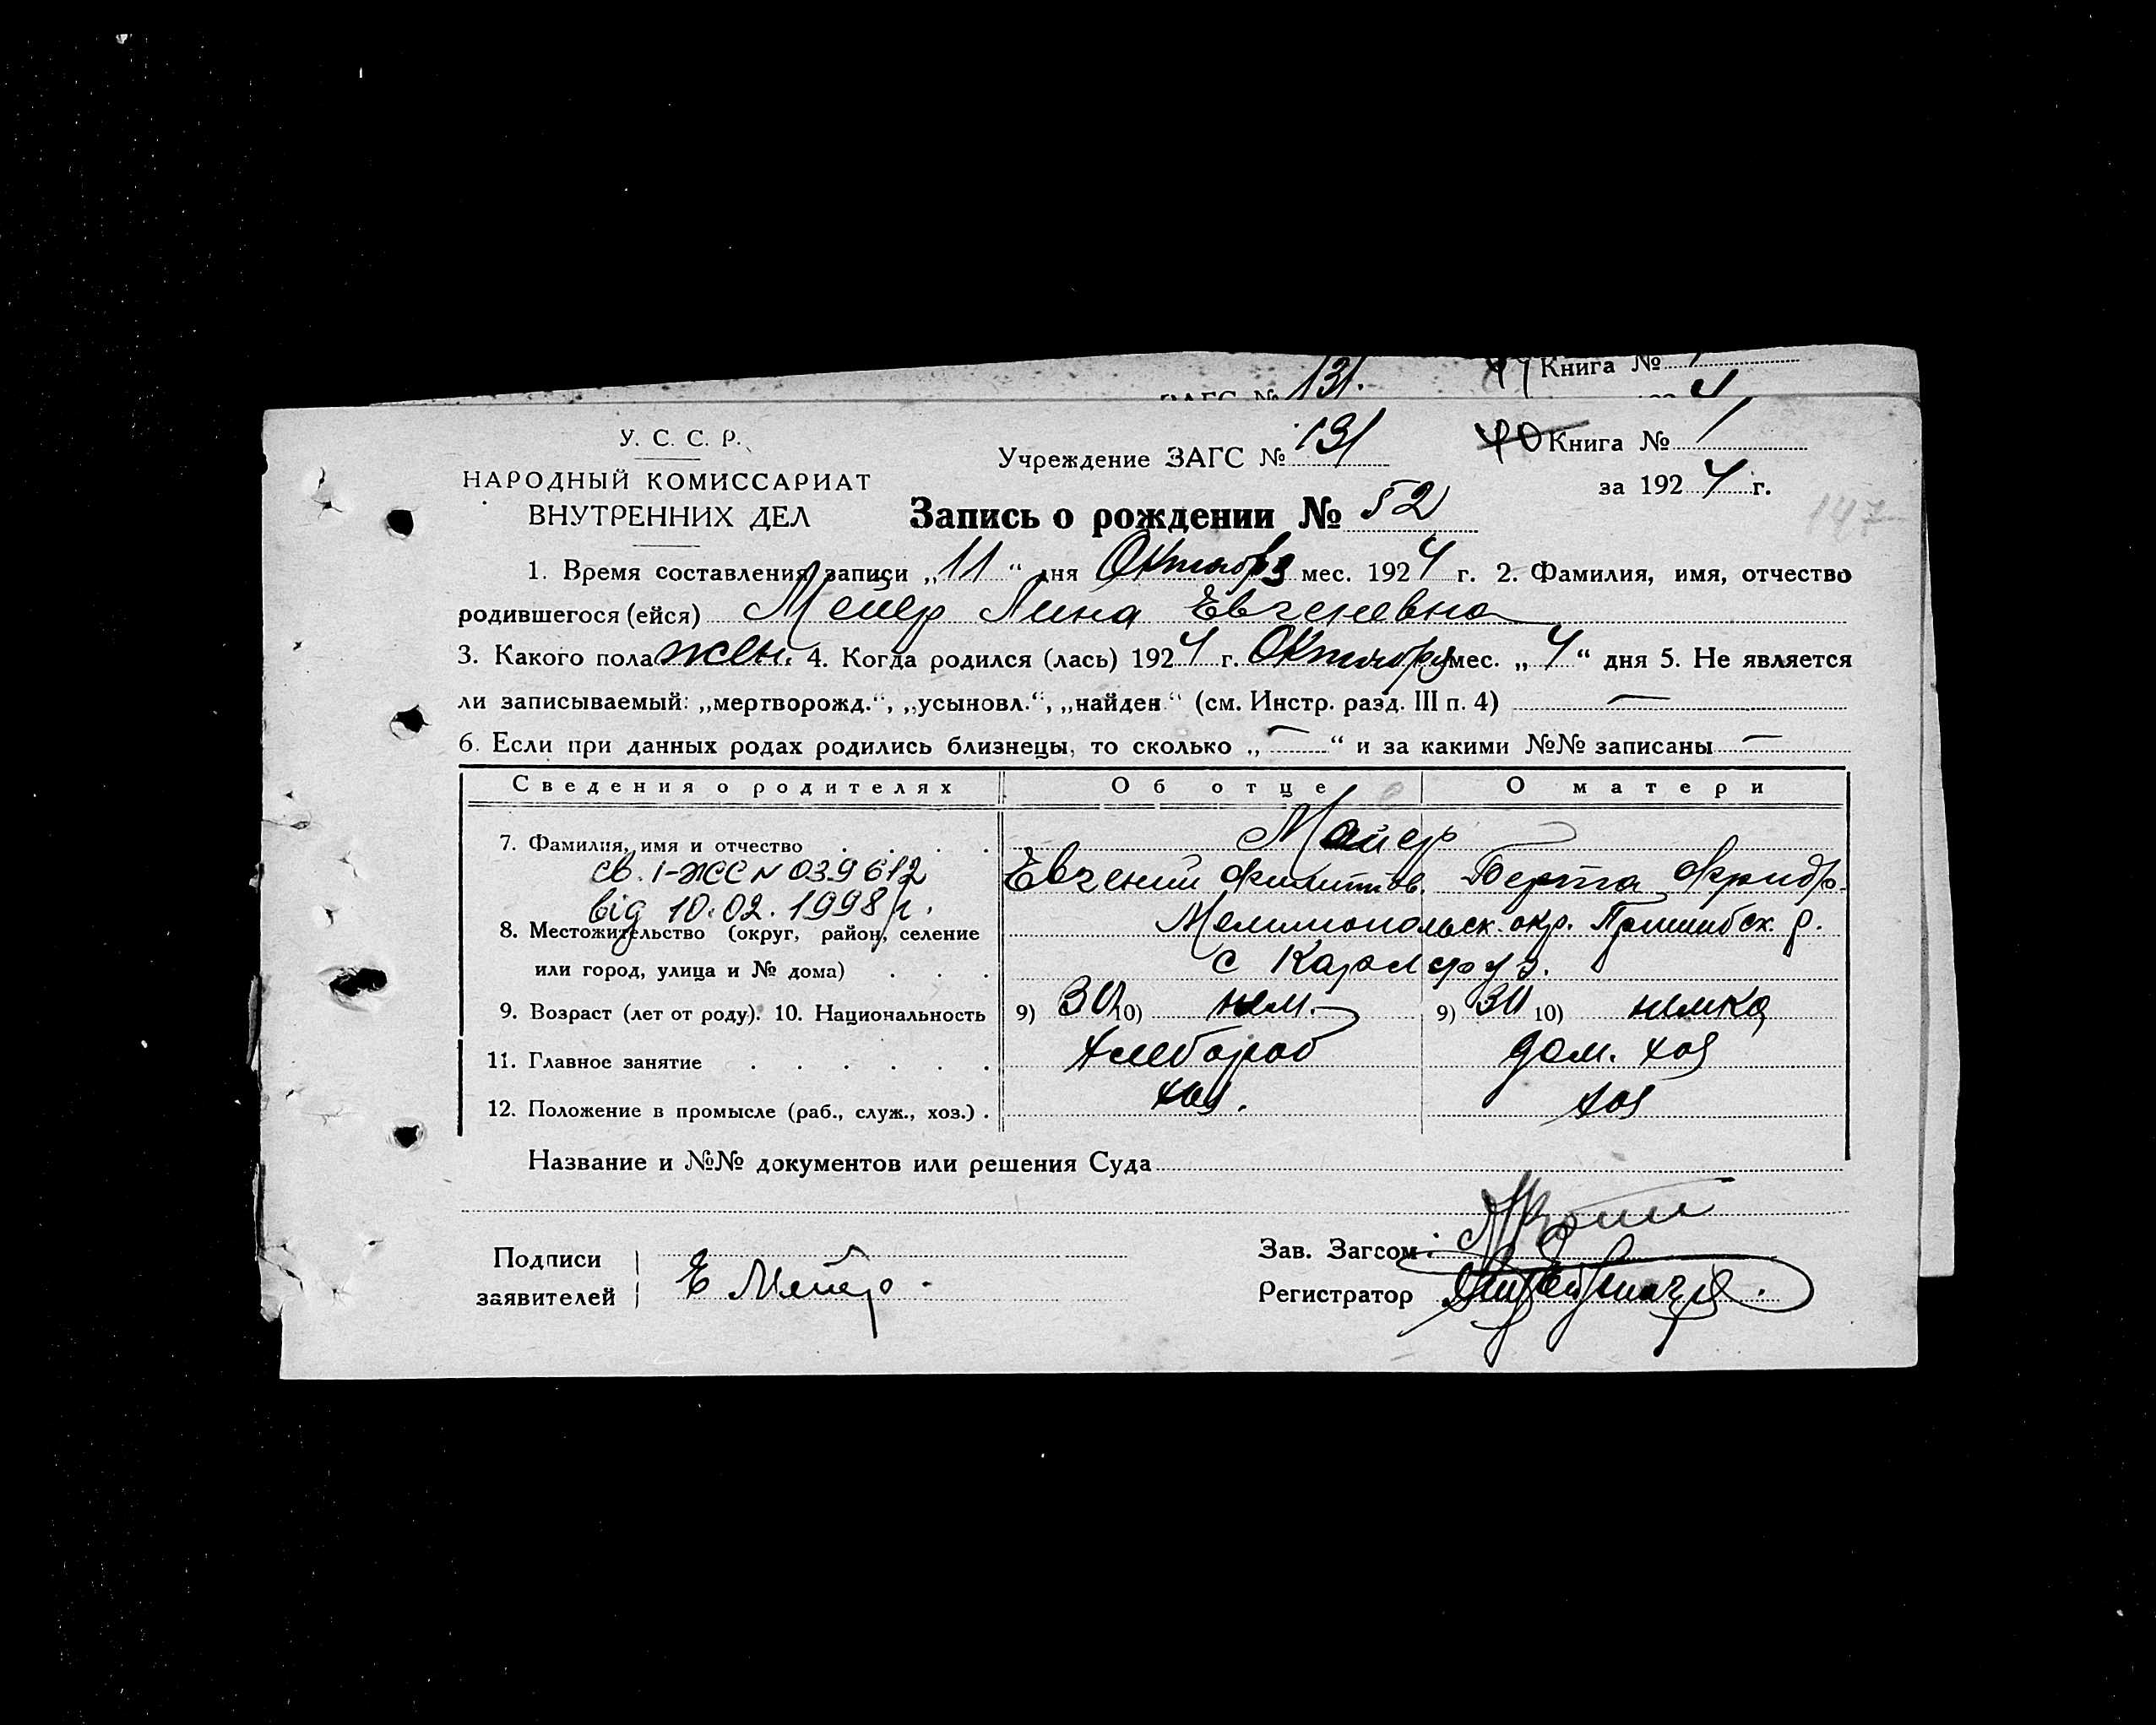 131. 41 Книга №
ЗАГС № 131. 4
У. С. С. Р.
НАРОДНЫЙ КОМИССАРИАТ
ВНУТРЕННИХ ДЕЛ
Учреждение ЗАГС № 131
40 Книга № 1
за 1924 г.
147
Запись о рождении № 52
1. Время составления записи „11“ дня Октября мес. 1924 г. 2. Фамилия, имя, отчество
родившегося (ейся) Мейер Лина Евгеневна
3. Какого пола жен. 4. Когда родился (лась) 1924 г. Октября мес. „4“ дня 5. Не является
ли записываемый: „мертворожд.“, „усыновл.“, „найден“ (см. Инстр. разд. III п. 4) —
6. Если при данных родах родились близнецы, то сколько „—“ и за какими №№ записаны —
Сведения о родителях Об отце О матери
7. Фамилия, имя и отчество Майер
св. I-ЖС № 039612 Евгений Филиппов. Берта Фридр.
від 10.02.1998 р.
8. Местожительство (округ, район, селение Мелитопольск. окр. Пришибск. р.
или город, улица и № дома) с Карлсруэ.
9. Возраст (лет от роду). 10. Национальность 9) 30 10) нем. 9) 30 10) немка
11. Главное занятие Хлебороб дом. хоз
12. Положение в промысле (раб., служ., хоз.) хоз. хоз
Название и №№ документов или решения Суда
Подписи
заявителей Е Мейер
Зав. Загсом
Регистратор